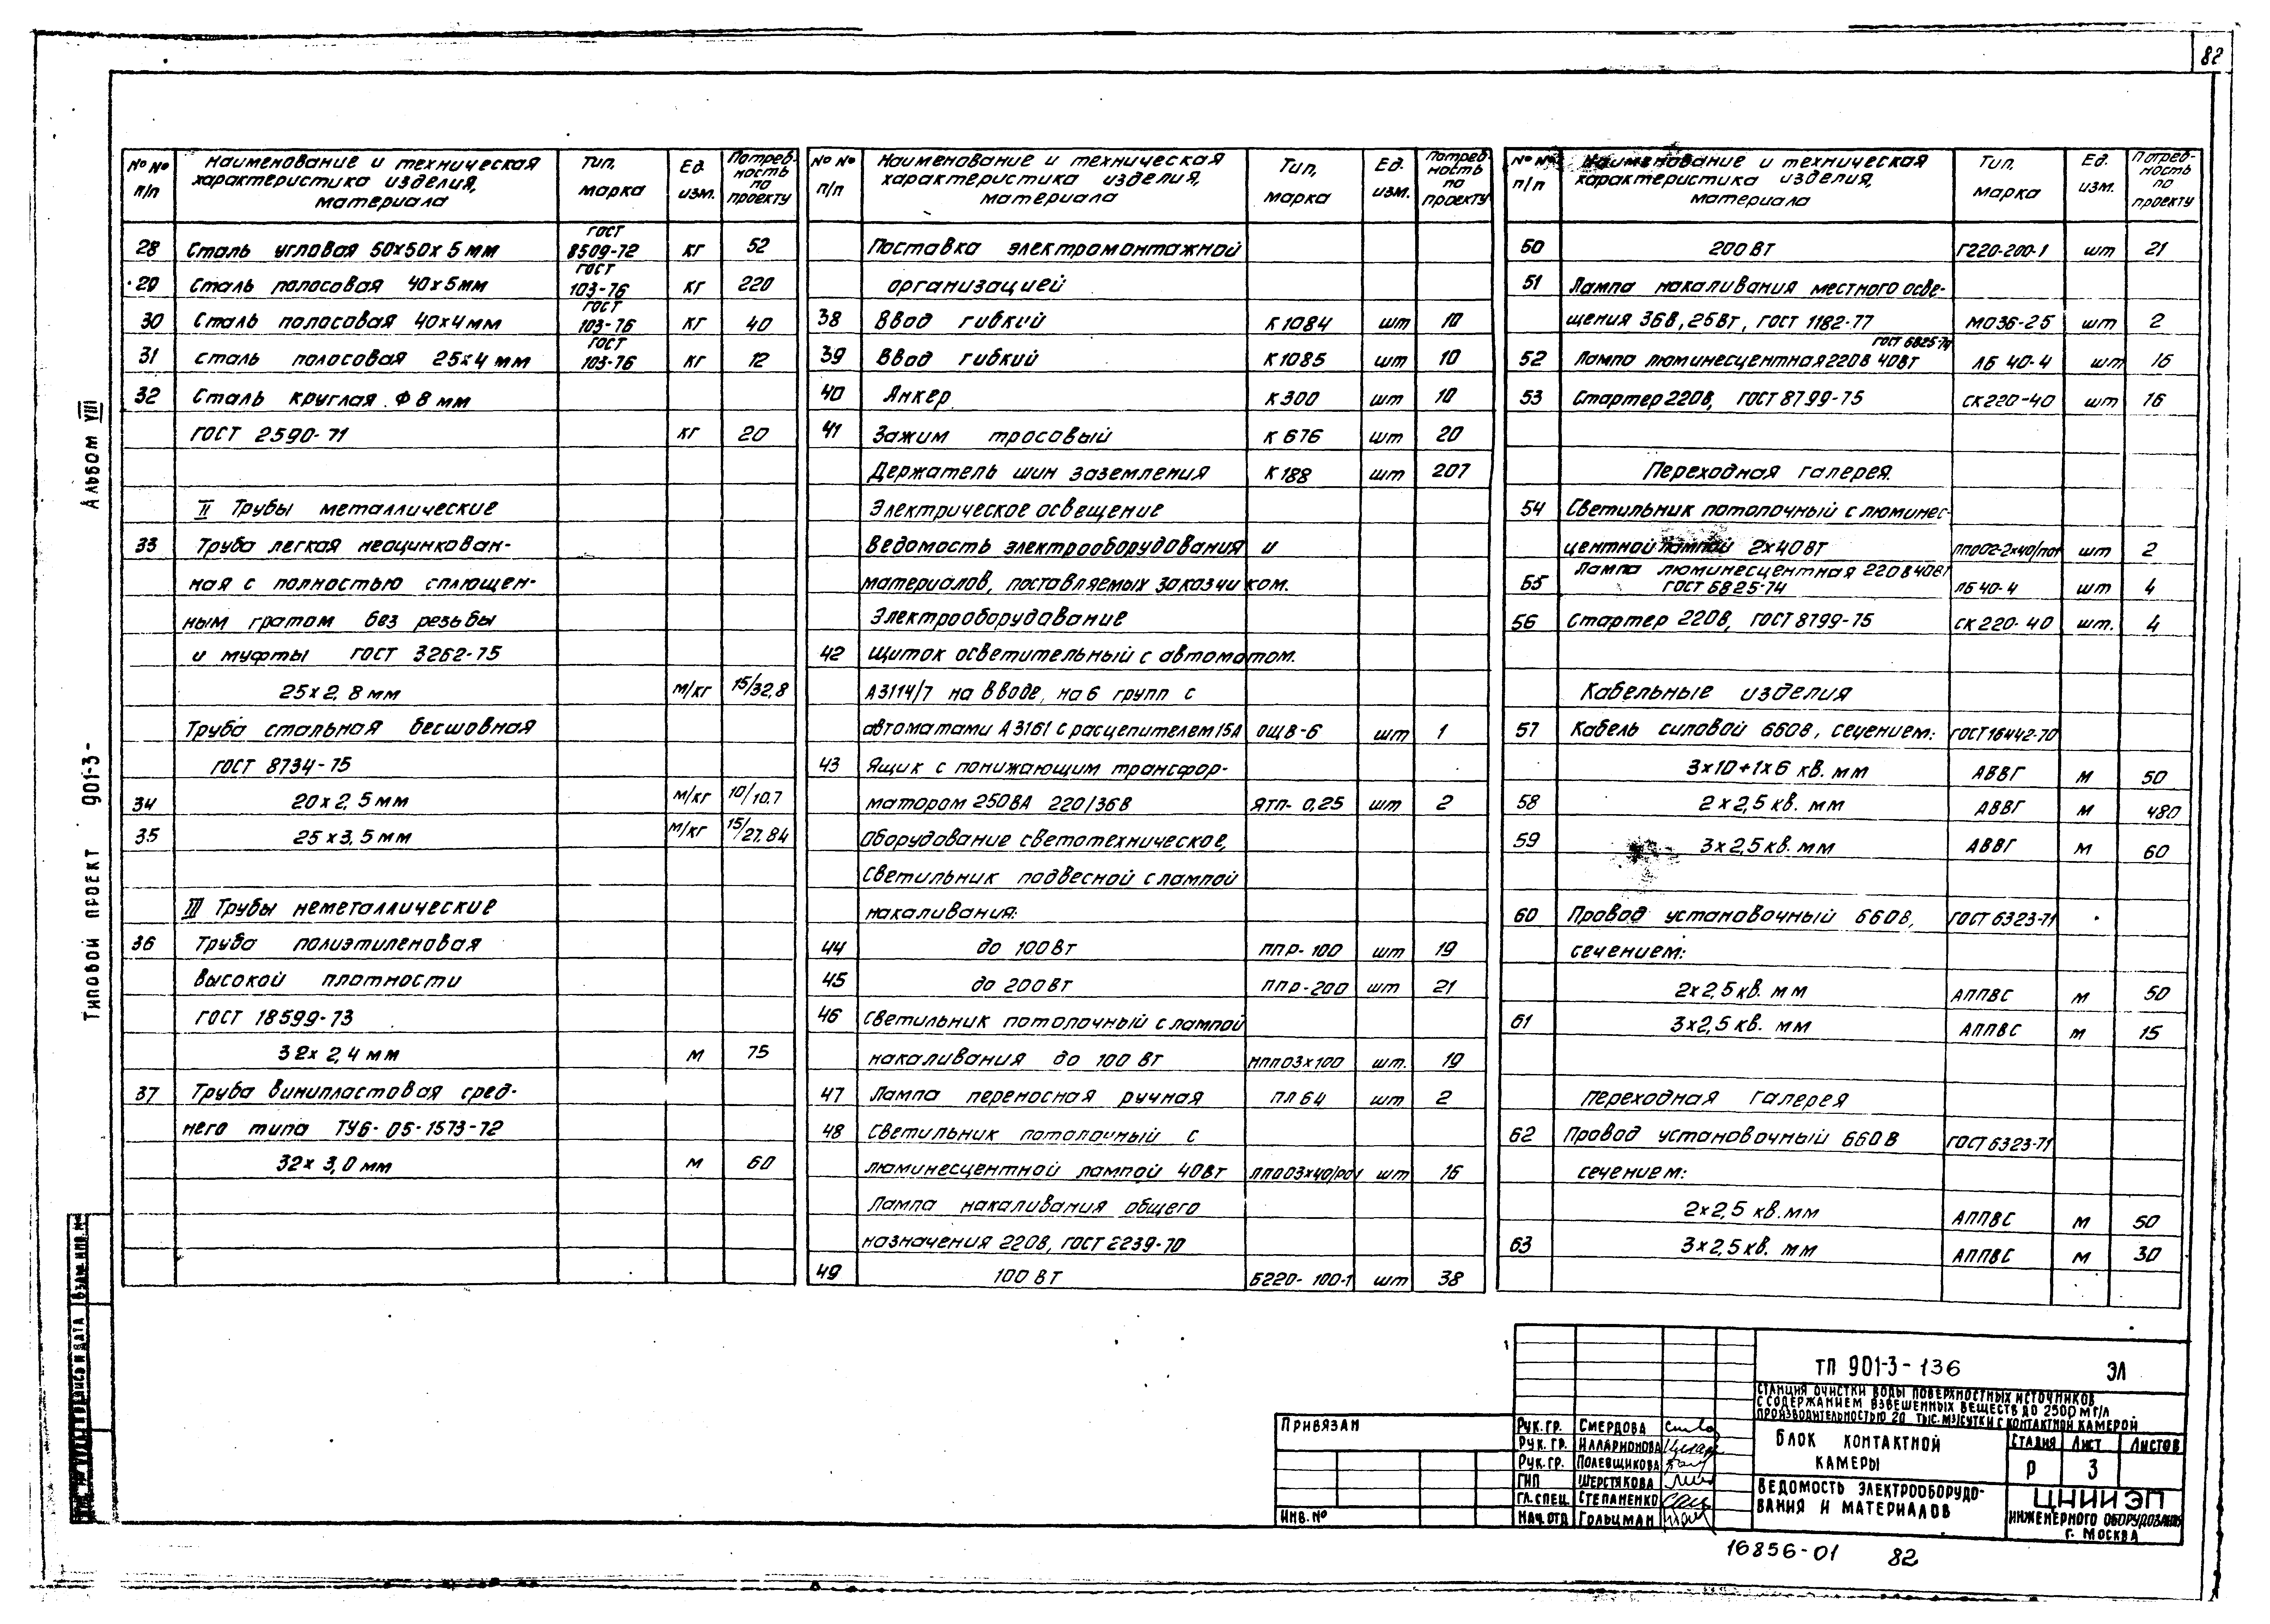 82
№№ п/п | Наименование и техническая характеристика изделия, материала | Тип, марка | Ед. изм. | Потреб-ность по проекту
28 Сталь угловая 50х50х5мм ГОСТ 8509-72 кг 52
29 Сталь полосовая 40х5мм ГОСТ 103-76 кг 220
30 Сталь полосовая 40х4мм ГОСТ 103-76 кг 40
31 Сталь полосовая 25х4мм ГОСТ 103-76 кг 12
32 Сталь круглая Ф8мм
ГОСТ 2590-71 кг 20
II Трубы металлические
33 Труба легкая неоцинкован-
ная с полностью сплющен-
ным гратом без резьбы
и муфты ГОСТ 3262-75
25х2,8мм м/кг 15/32,8
Труба стальная бесшовная
ГОСТ 8734-75
34 20х2,5мм м/кг 10/10,7
35 25х3,5мм м/кг 15/27,84
III Трубы неметаллические
36 Труба полиэтиленовая
высокой плотности
ГОСТ 18599-73
32х2,4мм м 75
37 Труба винипластовая сред-
него типа ТУ6-05-1573-72
32х3,0мм м 60
№№ п/п | Наименование и техническая характеристика изделия, материала | Тип, марка | Ед. изм. | Потреб-ность по проекту
Поставка электромонтажной
организацией
38 Ввод гибкий К1084 шт 10
39 Ввод гибкий К1085 шт 10
40 Анкер К300 шт 10
41 Зажим тросовый К676 шт 20
Держатель шин заземления К188 шт 207
Электрическое освещение
Ведомость электрооборудования и
материалов, поставляемых заказчиком.
Электрооборудование
42 Щиток осветительный с автоматом
А3114/7 на вводе, на 6 групп с
автоматами А3161 с расцепителем 15А ОЩВ-6 шт 1
43 Ящик с понижающим трансфор-
матором 250ВА 220/36В ЯТП-0,25 шт 2
Оборудование светотехническое,
Светильник подвесной с лампой
накаливания:
44 до 100Вт ППР-100 шт 19
45 до 200Вт ППР-200 шт 21
46 Светильник потолочный с лампой
накаливания до 100 Вт НПП03х100 шт. 19
47 Лампа переносная ручная ПЛ64 шт 2
48 Светильник потолочный с
люминесцентной лампой 40Вт ЛПО03х40/Р01 шт 16
Лампа накаливания общего
назначения 220В, ГОСТ 2239-70
49 100 Вт Б220-100-1 шт 38
№№ п/п | Наименование и техническая характеристика изделия, материала | Тип, марка | Ед. изм. | Потреб-ность по проекту
50 200Вт Г220-200-1 шт 21
51 Лампа накаливания местного осве-
щения 36В, 25Вт, ГОСТ 1182-77 МО36-25 шт 2
52 Лампа люминесцентная 220В 40Вт ГОСТ 6825-74 ЛБ 40-4 шт 16
53 Стартер 220В, ГОСТ 8799-75 СК220-40 шт 16
Переходная галерея.
54 Светильник потолочный с люминес-
центной лампой 2х40Вт ЛПО02-2х40/П01 шт 2
55 Лампа люминесцентная 220В 40Вт ГОСТ 6825-74 ЛБ40-4 шт 4
56 Стартер 220В, ГОСТ 8799-75 СК220-40 шт. 4
Кабельные изделия
57 Кабель силовой 660В, сечением: ГОСТ 16442-70
3х10+1х6 кв. мм АВВГ м 50
58 2х2,5 кв. мм АВВГ м 480
59 3х2,5 кв. мм АВВГ м 60
60 Провод установочный 660В, ГОСТ 6323-71
сечением:
2х2,5 кв. мм АППВС м 50
61 3х2,5 кв. мм АППВС м 15
Переходная галерея
62 Провод установочный 660В ГОСТ 6323-71
сечением:
2х2,5 кв.мм АППВС м 50
63 3х2,5 кв. мм АППВС м 30
Альбом VIII
Типовой проект 901-3-
Взам. инв. №
Привязан
Инв. №
Рук. гр. Смердова
Рук. гр. Илларионова
Рук. гр. Полевщикова
ГИП Шерстякова
Гл. спец. Степаненко
Нач. отд Гольцман
ТП 901-3-136 ЭЛ
Станция очистки воды поверхностных источников
с содержанием взвешенных веществ до 2500 мг/л
производительностью 20 тыс. м3/сутки с контактной камерой
Блок контактной
камеры
Стадия Лист Листов
Р 3
Ведомость электрооборудо-
вания и материалов
ЦНИИЭП
инженерного оборудования
г. Москва
16856-01 82